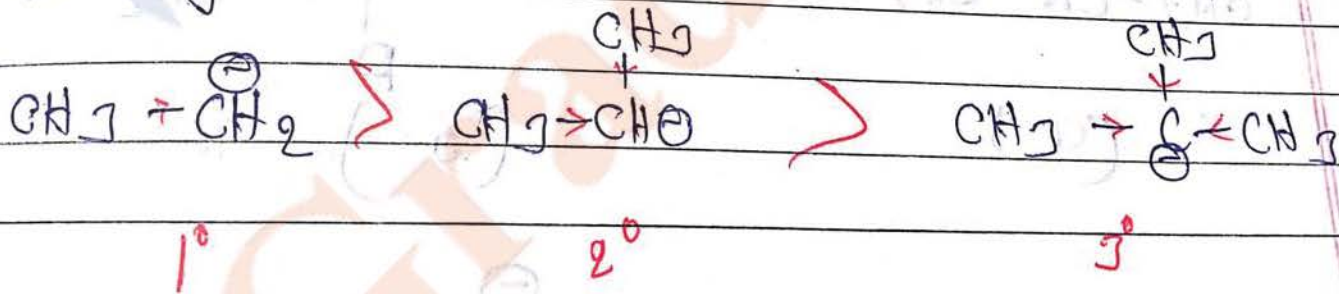 CH3 CH3
CH3 → CH2⊖ > CH3 → CH⊖ > CH3 → C⊖ ← CH3
1° 2° 3°